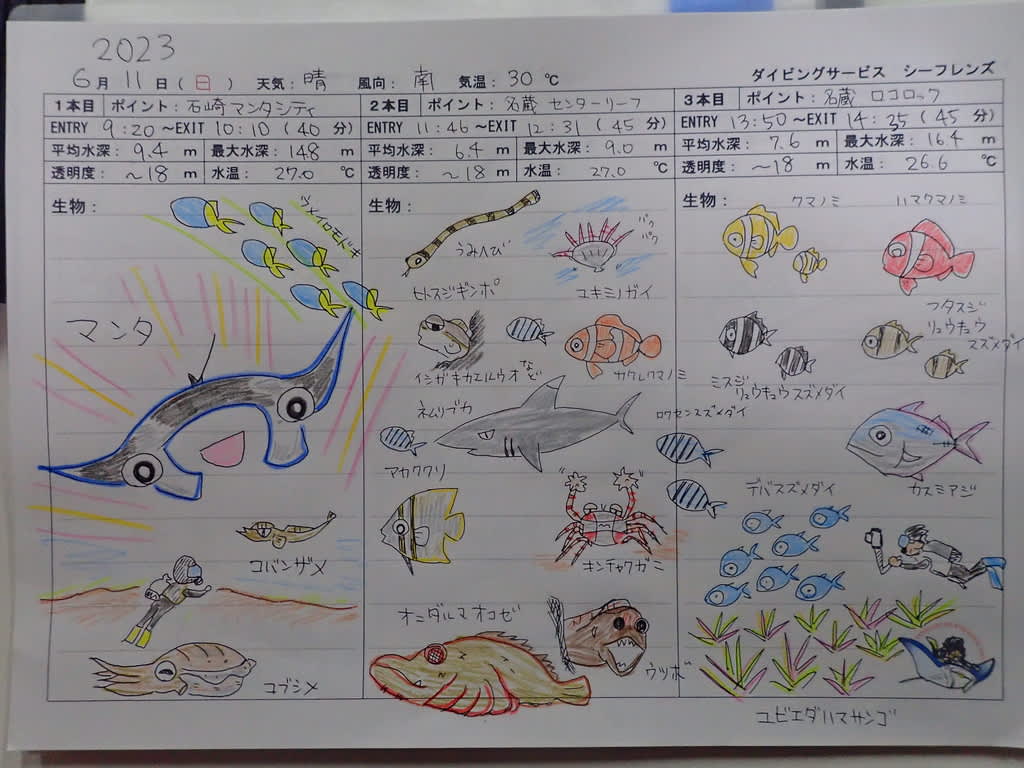 2023
6月 11日(日) 天気:晴 風向:南 気温:30℃
ダイビングサービス シーフレンズ
1本目 ポイント:石崎マンタシティ
ENTRY 9:20~EXIT 10:10(40分)
平均水深:9.4m 最大水深:14.8m
透明度:~18m 水温:27.0℃
生物:
ウメイロモドキ
マンタ
コバンザメ
コブシメ
2本目 ポイント:名蔵 センターリーフ
ENTRY 11:46~EXIT 12:31(45分)
平均水深:6.4m 最大水深:9.0m
透明度:~18m 水温:27.0℃
生物:
うみへび
パク
パク
ユキミノガイ
ヒトスジギンポ
イシガキカエルウオ など
カクレクマノミ
ネムリブカ
ロクセンスズメダイ
アカククリ
キンチャクガニ
オニダルマオコゼ
ウツボ
3本目 ポイント:名蔵 ロコロック
ENTRY 13:50~EXIT 14:35(45分)
平均水深:7.6m 最大水深:16.4m
透明度:~18m 水温:26.6℃
生物:
クマノミ
ハマクマノミ
フタスジ
リュウキュウ
スズメダイ
ミスジ
リュウキュウスズメダイ
デバスズメダイ
カスミアジ
ユビエダハマサンゴ